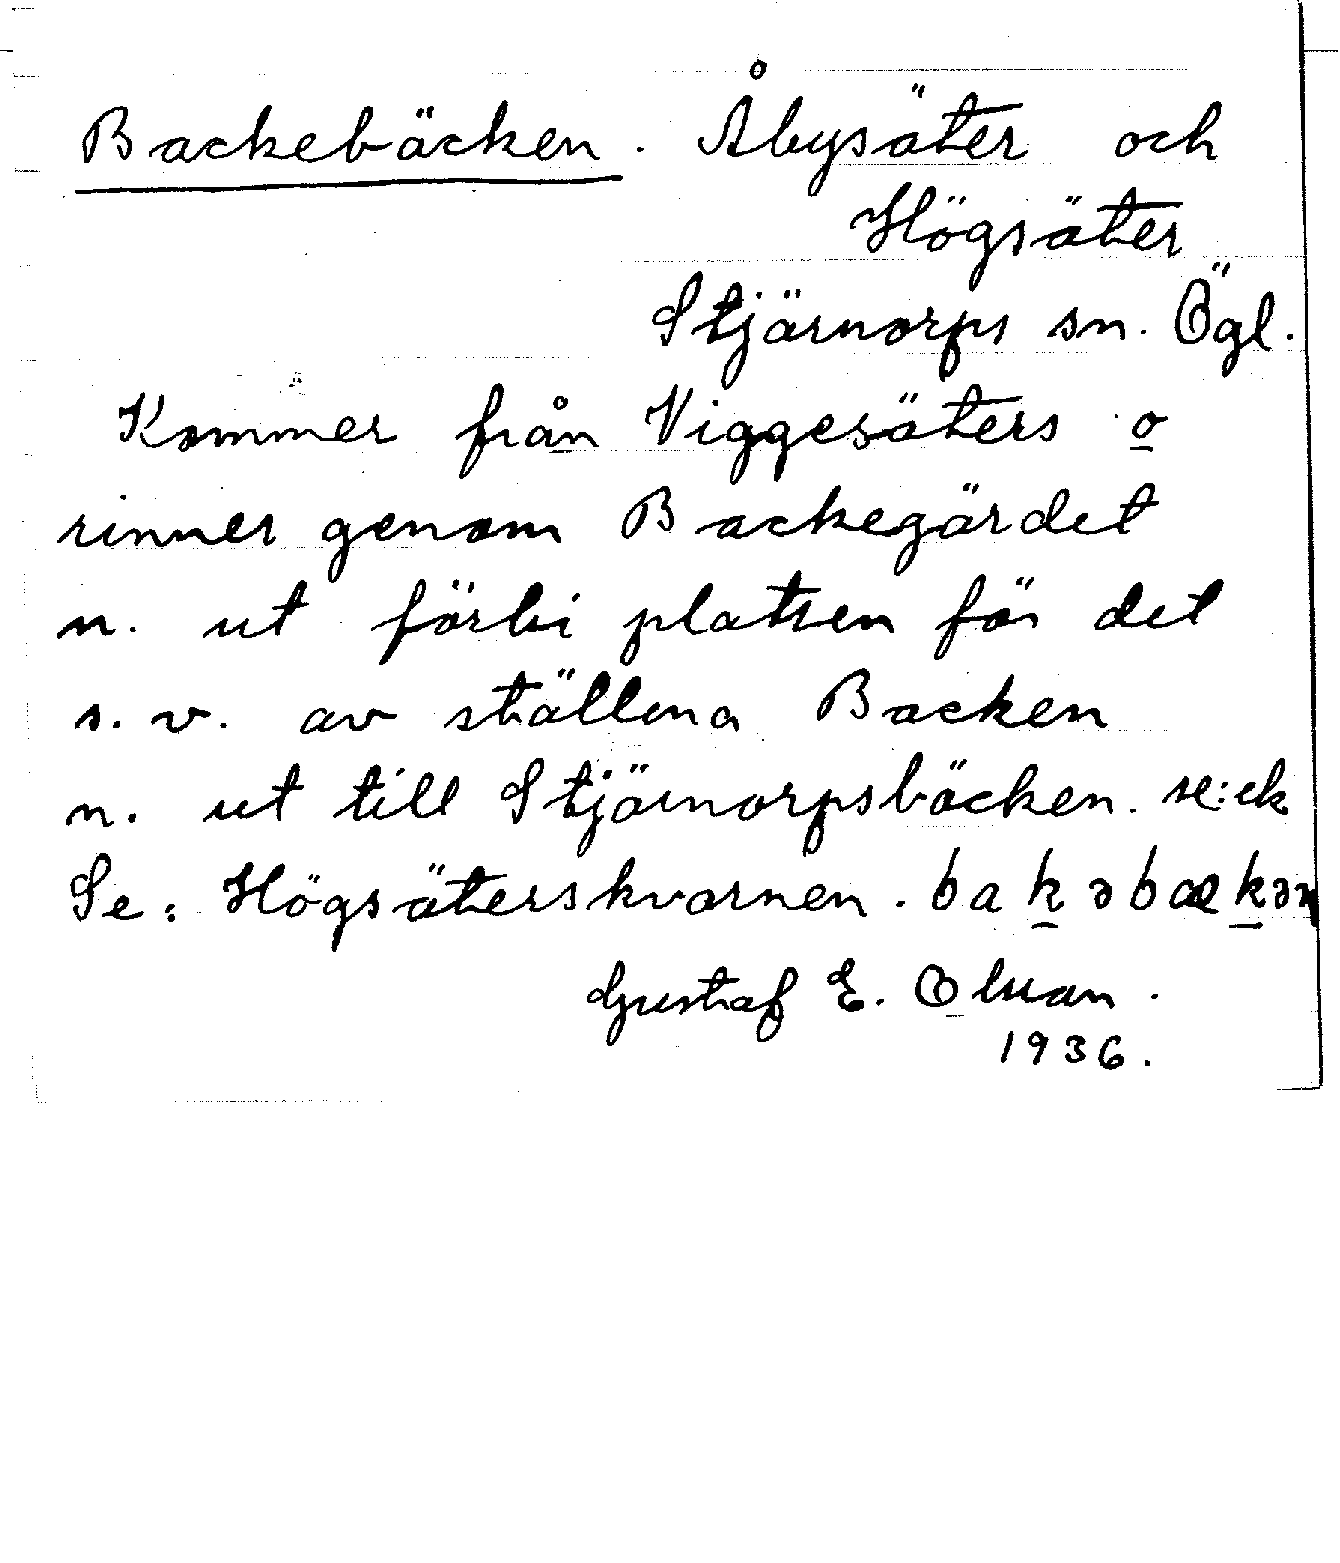 Backebäcken. Åbysäter och
Högsäter
Stjärnorps sn. Ögl.
Kommer från Viggesäters o
rinner genom Backegärdet
n. ut förbi platsen för det
s. v. av ställena Backen
n. ut till Stjärnorpsbäcken. se: ek
Se: Högsäterskvarnen. bakəbækən
Gustaf E. Olman.
1936.